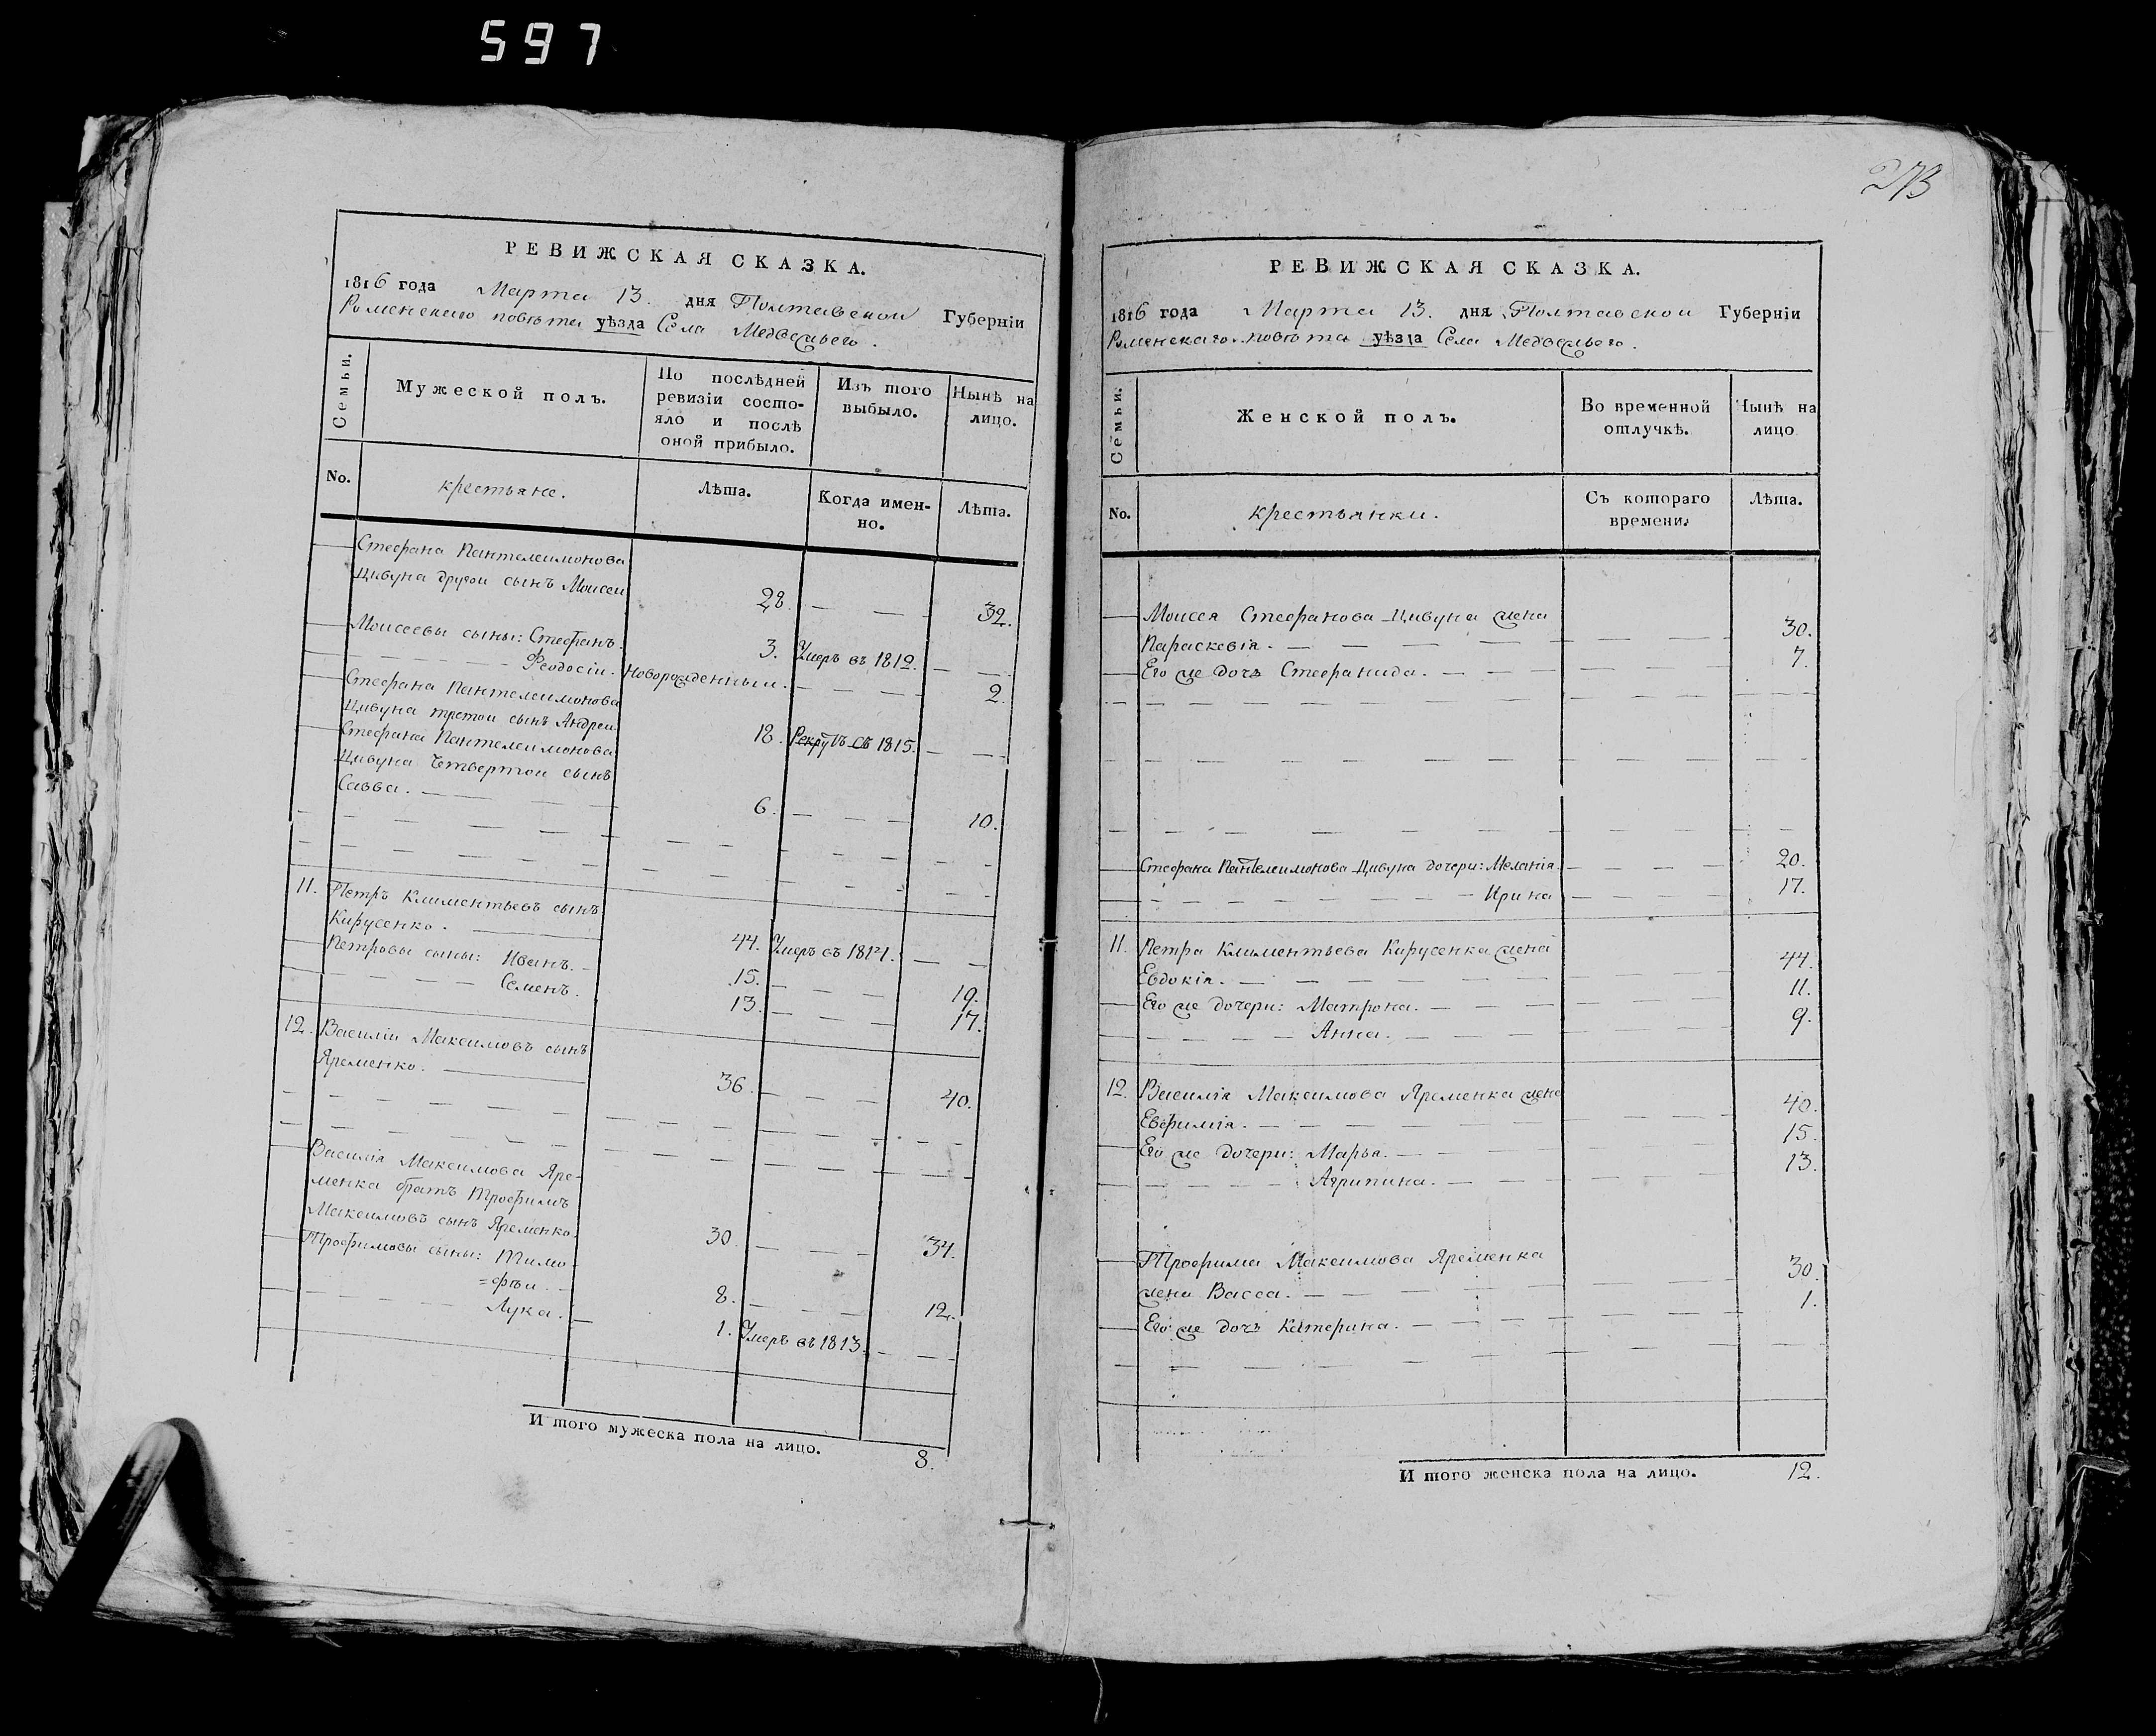 597
273
РЕВИЖСКАЯ СКАЗКА.
1816 года Марта 13. дня Полтавской Губерніи
Роменскаго повѣта уѣзда Села Медвежьего.
Семьи.
Мужеской полъ.
По послѣдней ревизіи состо-
яло и послѣ оной прибыло.
Изъ того выбыло.
Нынѣ на лицо.
No.
крестьяне.
Лѣта.
Когда имен-
но.
Лѣта.
Стефана Пантелеимонова
Цивуна другои сынъ Моисеи 28. — — 32.
Моисеевы сыны: Стефанъ. 3. Умеръ въ 1812. — —
— — — Феодосіи. Новорожденныи. — — — 2.
Стефана Пантелеимонова
Цивуна третои сынъ Андреи 18. Рекрутъ съ 1815. — —
Стефана Пантелеимонова
Цивуна Четвертои сынъ
Савва. — — 6. — — — 10.
11. Петръ Климентьевъ сынъ
Кирусенко. — 44. Умеръ въ 1814. — —
Петровы сыны: Иванъ. — 15. — — — 19.
— — — Семенъ. 13. — — — 17.
12. Василіи Максимовъ сынъ
Яременко. — 36. — — — 40.
Василія Максимова Яре-
менка братъ Трофимъ
Максимовъ сынъ Яременко. 30. — — — 34.
Трофимовы сыны: Тимо-
=фѣи. — 8. — — — 12.
— — — Лука. — 1. Умеръ въ 1813. — —
И того мужеска пола на лицо. 8.
РЕВИЖСКАЯ СКАЗКА.
1816 года Марта 13. дня Полтавской Губерніи
Роменскаго повѣта уѣзда Села Медвежьего.
Семьи.
Женской полъ.
Во временной
отлучкѣ.
Нынѣ на
лицо
No.
крестьянки.
Съ котораго
времени.
Лѣта.
Моисея Стефанова Цивуна жена
Парасковія. — — — — 30.
Его же дочь Стефанида. — — — 7.
Стефана Пантелеимонова Цивуна дочери: Меланія. — — — 20.
— — — Ирина — — — 17.
11. Петра Климентьева Кирусенка жена
Евдокія. — — — — 44.
Его же дочери: Матрона. — — — 11.
— — — Анна. — — — 9.
12. Василія Максимова Яременка жена
Евфимія. — — — — 40.
Его же дочери: Марья. — — — 15.
— — — Агрипина. — — — 13.
Трофима Максимова Яременка
жена Васса. — — — 30.
Его же дочь Катерина. — — — 1.
И того женска пола на лицо. 12.